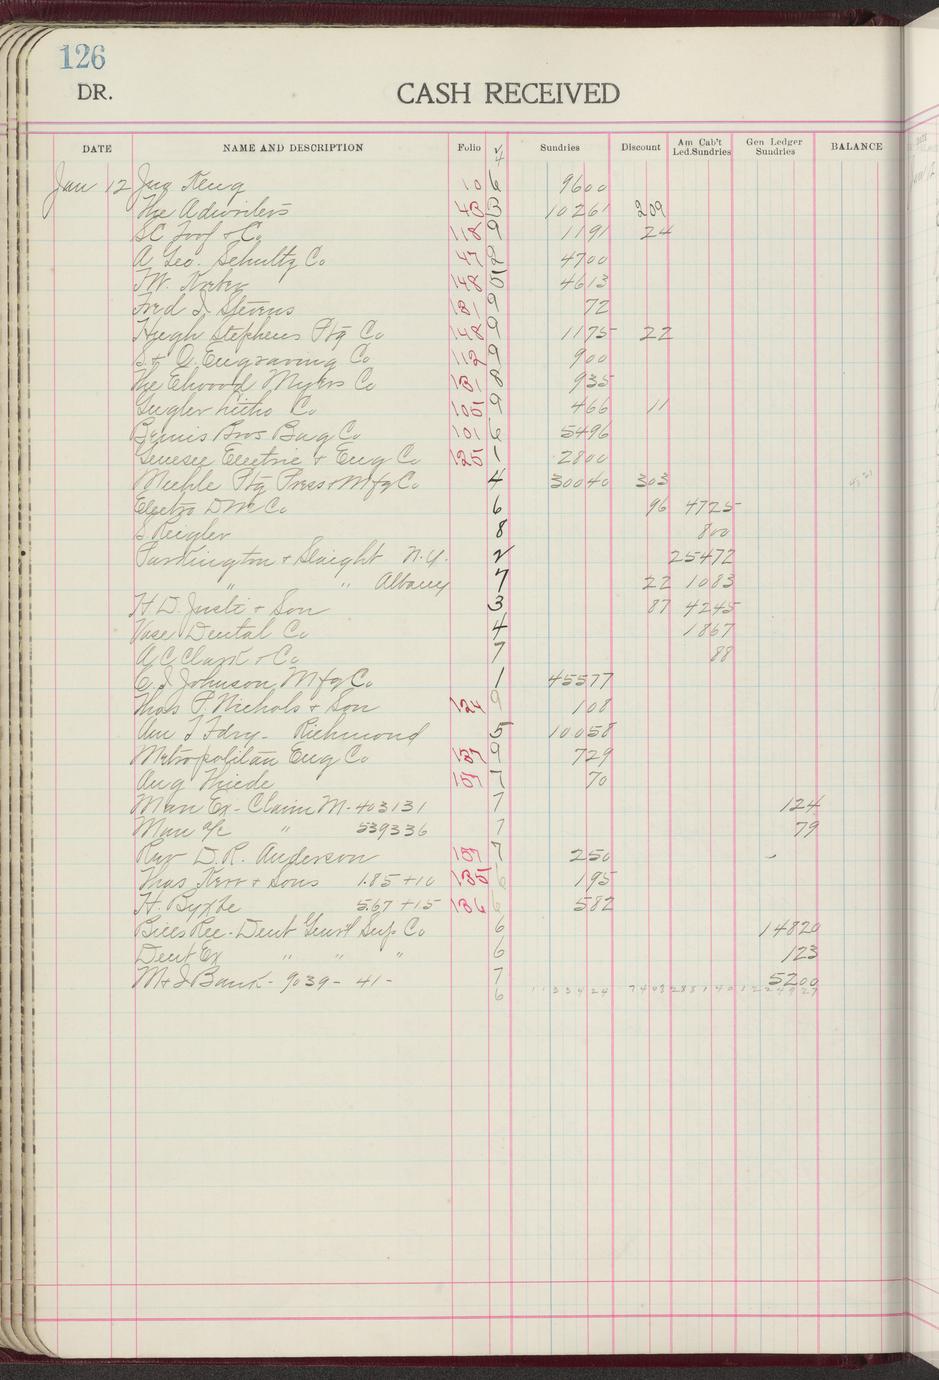 126
DR. CASH RECEIVED
DATE NAME AND DESCRIPTION Folio √ Sundries Discount Am Cab't Led.Sundries Gen Ledger Sundries BALANCE
4
Jan 12 Jno King 10 6 9600
The Adwriters 43 3 10261 209
SC Toof & Co 118 9 1191 24
A Geo. Schultz Co 47 4700
148 5 4613
Fred I. Stevens 181 9 72
Hugh Stephens Ptg Co 148 9 1175 22
S & O. Engraving Co 112 9 900
The Elwood Myers Co 131 8 935
Gugler Litho Co 105 9 466 11
Bemis Bros Bag Co 101 6 5496
Genesee Electric & Eng Co 125 1 2800
Miehle Ptg Press & Mfg Co 4 30040 303
Electro D M Co 6 96 4725
S Reigler 8 800
Partrington & Slaight N.Y. 2 25472
" " Albany 7 22 1083
H. D. Justi & Son 3 87 4245
Vase Dental Co 4 1867
A C Clark & Co 7 88
C. I. Johnson Mfg Co 1 45577
Thos P. Nichols & Son 124 9 108
Am T Fdry - Richmond 5 10058
Metropolitan Eng Co 137 9 729
Aug Thiede 157 7 70
Man Ex - Claim M - 403131 7 124
Man a/c " 539336 7 79
Rev D. R. Anderson 157 7 250
Thos Kerr & Sons 1.85 + 10 135 6 195
H. Byxbe 5.67 + 15 136 6 582
Bills Rec - Dent Genrl Sup Co 6 14820
Dent Ex " " " 6 123
M & I Bank - 9039 - 41 - 7 5200
6 1133424 7408